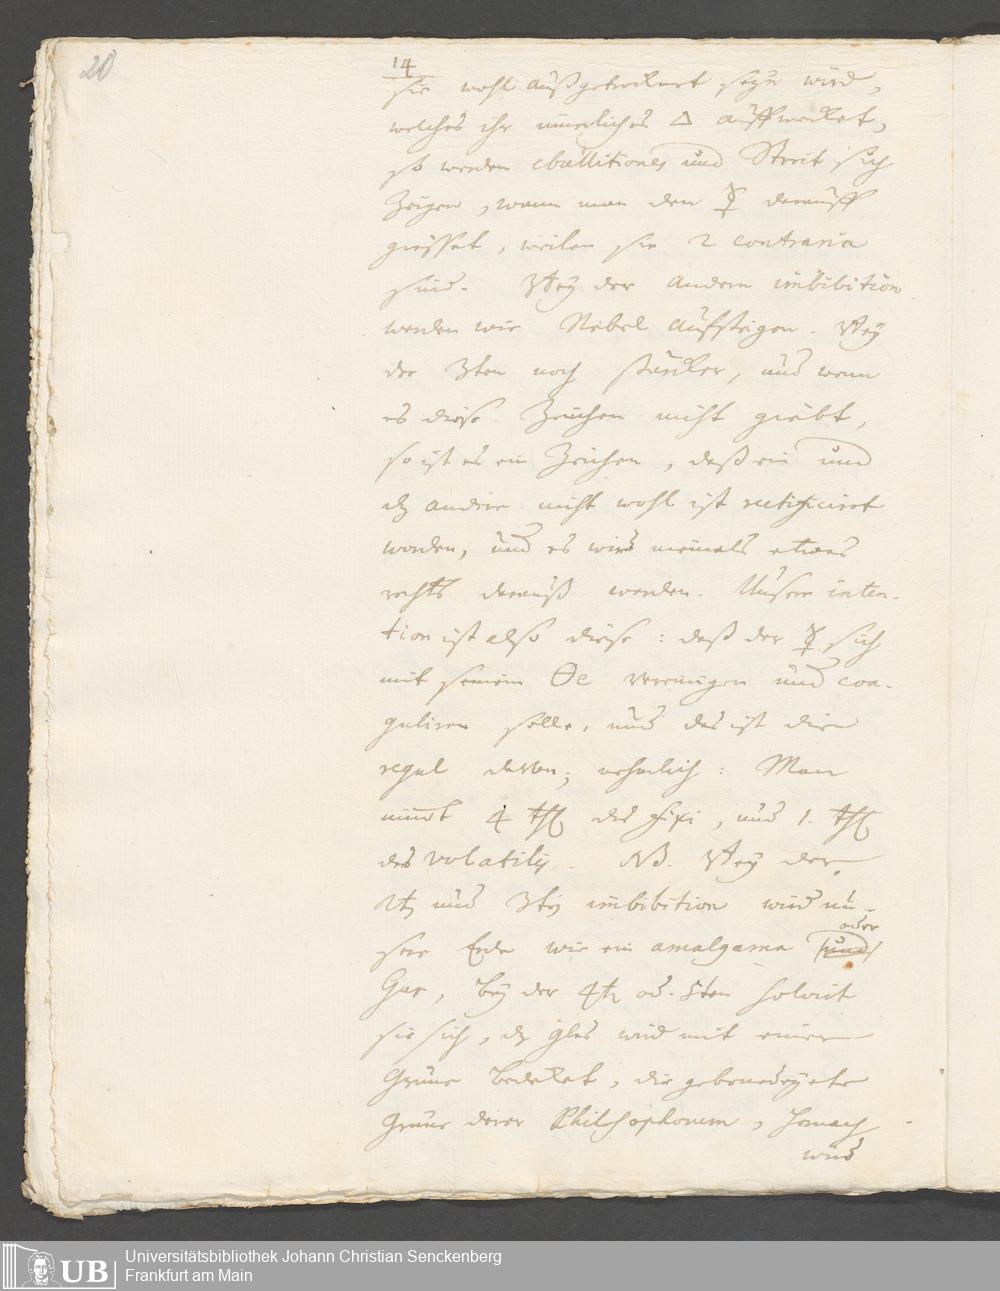 20
14
sie wohl außgetrocknet seyn wird,
welches ihr innerliches 🜂 auffwecket,
so werden ebullitiones und Streit sich
zeigen, wann man den ☿ darauff
giesset, weilen sie 2 contraria
sind. Bey der andern imbibition
werden wie Nebel aufsteigen. Bey
der 3ten noch stärcker, und wenn
es diese Zeichen nicht giebt,
so ist es ein Zeichen, daß ein und
dz andere nicht wohl ist rectificiret
worden, und es wird niemals etwas
rechts darauß werden. Unsere inten-
tion ist also diese: daß der ☿ sich
mit seinem 🜔e vereinigen und coa-
guliren solle, und das ist die
regul davon; nehmlich: Man
nimbt 4 thl des fixi, und 1. thl
des volatilis. NB. Bey der
2t und 3t imbibition wird un-
sere Erde wie ein amalgama
oder
und
Gar, bey der 4t od. 5ten solvirt
sie sich, dz glas wird mit einer
Grüne bedecket, die gebenedeyete
Grüne derer Philosophorum, hernach
wird
Universitätsbibliothek Johann Christian Senckenberg
Frankfurt am Main
UB